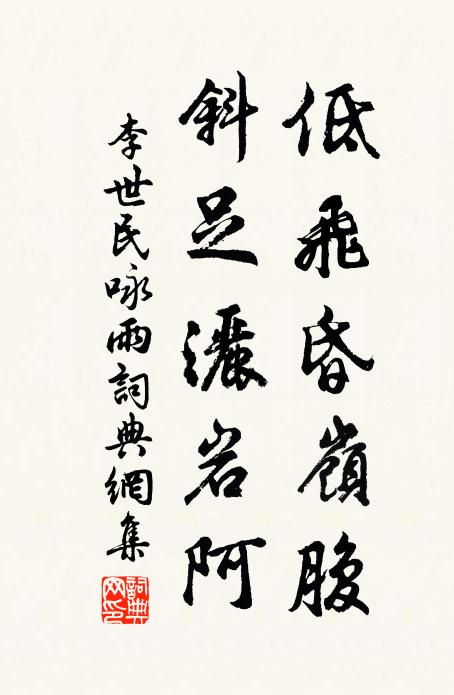 低飛昏嶺腹
斜足灑岩阿
李世民咏雨詞典網集
詞典网印